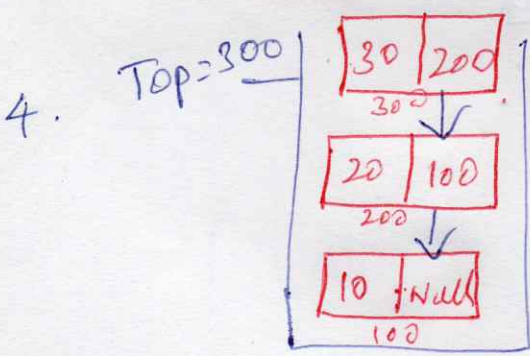 4. Top=300
30 200
300
20 100
200
10 Null
100